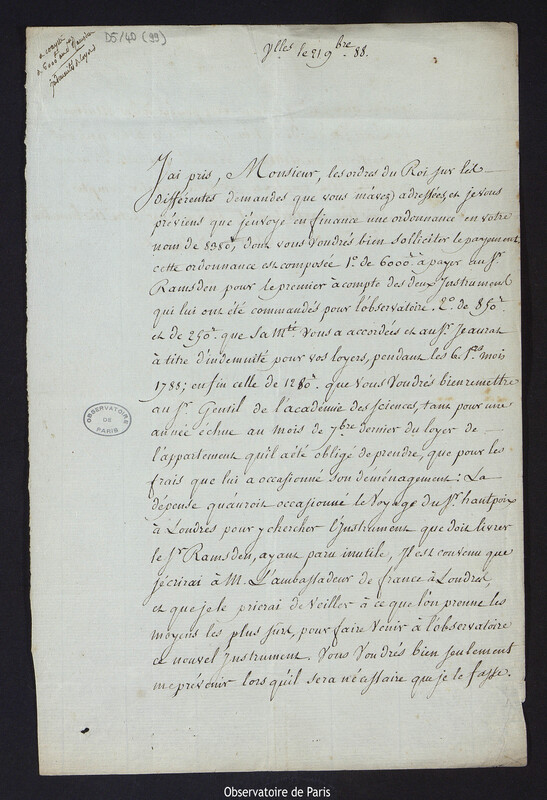 D5/40 (99)
a compte
indemnités de loyers
Vlles le 21 9bre 88.
J'ai pris, Monsieur, les ordres du Roi sur les
différentes demandes que vous m'avez adressées, et je vous
préviens que j'envoye en finance une ordonnance en votre
nom de 8380#, dont vous voudrés bien solliciter le payement.
cette ordonnance est composée 1o. de 6000# à payer au Sr.
Ramsden pour le premier àcompte des deux Instrument
qui lui ont été commandés pour l'observatoire. 2o. de 850#
et de 250# que Sa Mté. Vous a accordées et au Sr. Jeaurat
à titre d'indemnité pour vos loyers, pendant les 6 1ers mois
1788; enfin celle de 1280# que Vous Voudrés bien remettre
au Sr. Gentil de l'académie des sciences, tant pour une
année échue au mois de 7bre dernier du loyer de
l'appartement qu'il a été obligé de prendre, que pour les
frais que lui a occasionné son déménagement: La
dépense qu'auroit occasionné le Voyage du Sr. hautpoix
à Londres pour y chercher l'Instrument que doit livrer
le Sr. Ramsden, ayant paru inutile, Il est convenu que
j'écrirai à M. L'ambassadeur de france à Londres,
et que je le prierai de veiller à ce que l'on prenne les
moyens les plus surs, pour faire Venir à l'observatoire
ce nouvel Instrument. Vous Voudrés bien seulement
me prévenir lorsqu'il sera nécessaire que je le fasse.
OBSERVATOIRE
DE
PARIS
Observatoire de Paris